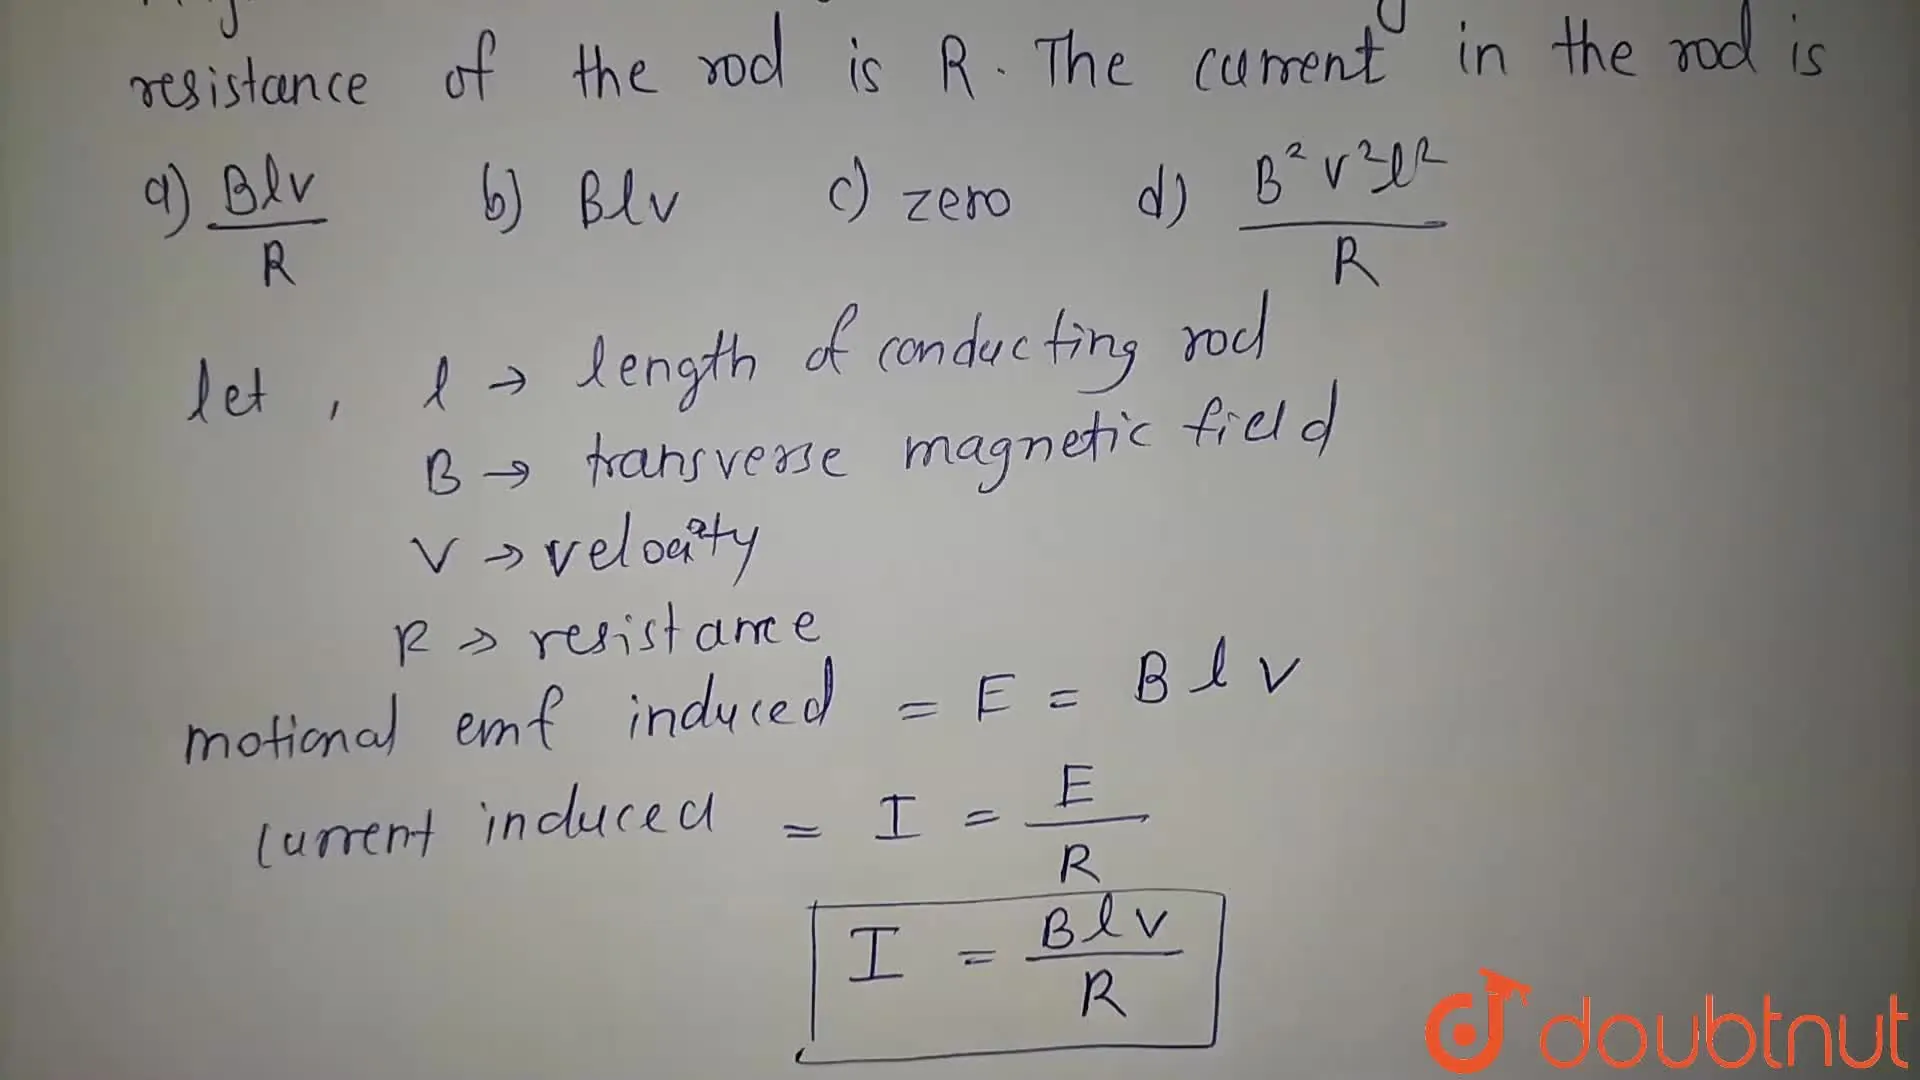 resistance of the rod is R. The current in the rod is
a) Blv/R b) Blv c) zero d) B²v²l²/R
let, l → length of conducting rod
B → transverse magnetic field
V → velocity
R → resistance
motional emf induced = E = Blv
current induced = I = E/R
I = Blv/R
doubtnut